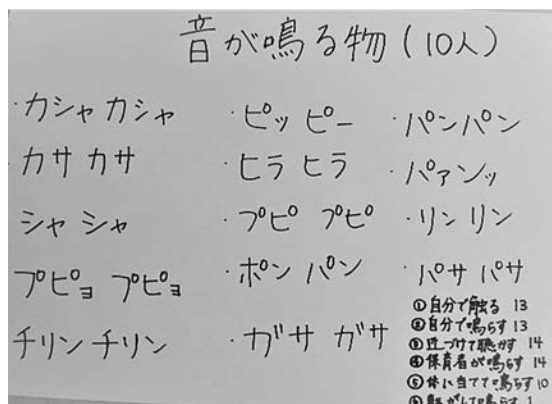 音が鳴る物(10人)
・カシャカシャ
カサカサ
シャシャ
プピョプピョ
チリンチリン
・ピッピー
・ヒラヒラ
・プピプピ
・ポンパン
・ガサガサ
・パンパン
・パァンッ
・リンリン
・パサパサ
①自分で触る 13
②自分で鳴らす 13
③近づけて聴かす 14
④保育者が鳴らす 14
⑤体に当てて鳴らす 10